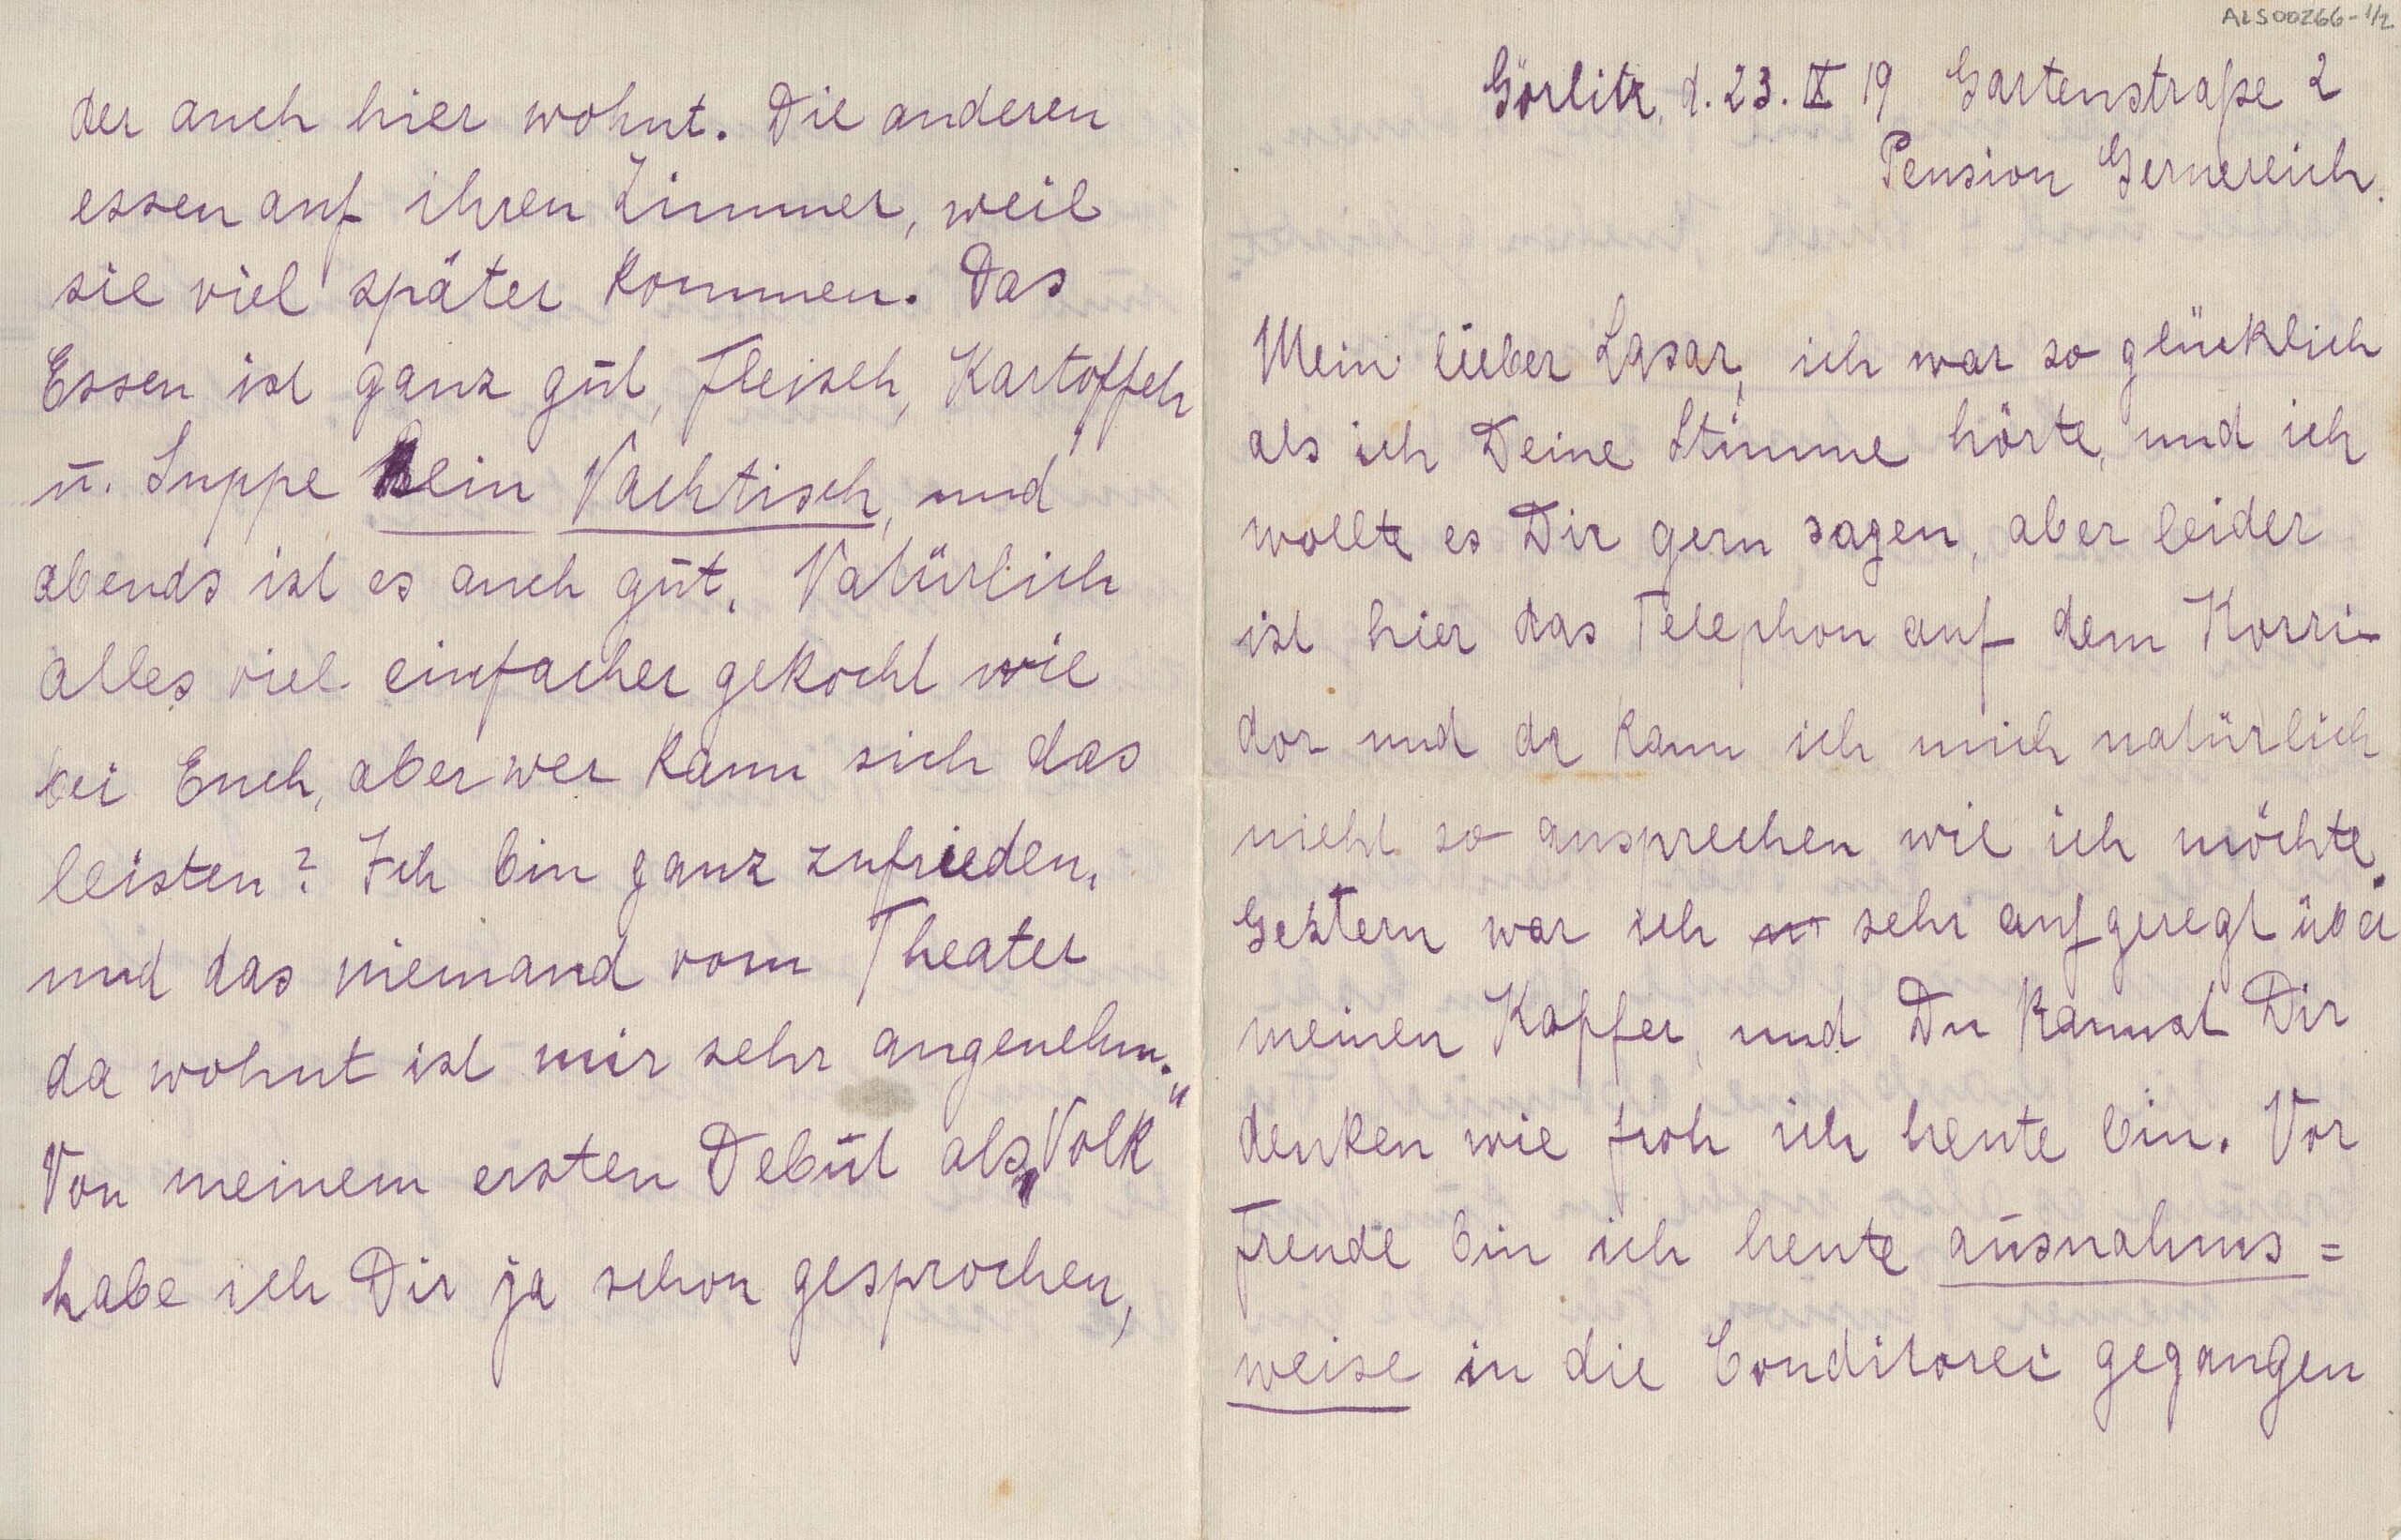 ALS00266-1/2
Görlitz, d. 23. IX 19 Gartenstraße 2
Pension Gernereich.
Mein lieber Lasar, ich war so glücklich
als ich Deine Stimme hörte, und ich
wollte es Dir gern sagen, aber leider
ist hier das Telephon auf dem Korri-
dor und da kann ich mich natürlich
nicht so aussprechen wie ich möchte.
Gestern war ich sehr aufgeregt über
meinen Kopfer, und Du kannst Dir
denken wie froh ich heute bin. Vor
Freude bin ich heute ausnahms=
weise in die Conditorei gegangen
der auch hier wohnt. Die anderen
essen auf ihren Zimmer, weil
sie viel später kommen. Das
Essen ist ganz gut, Fleisch, Kartoffeln
u. Suppe kein Nachtisch, und
abends ist es auch gut. Natürlich
alles viel einfacher gekocht wie
bei Euch, aber wer kann sich das
leisten? Ich bin ganz zufrieden,
und das niemand vom Theater
da wohnt ist mir sehr angenehm.
Von meinem ersten Debüt als „Volk"
habe ich Dir ja schon gesprochen,